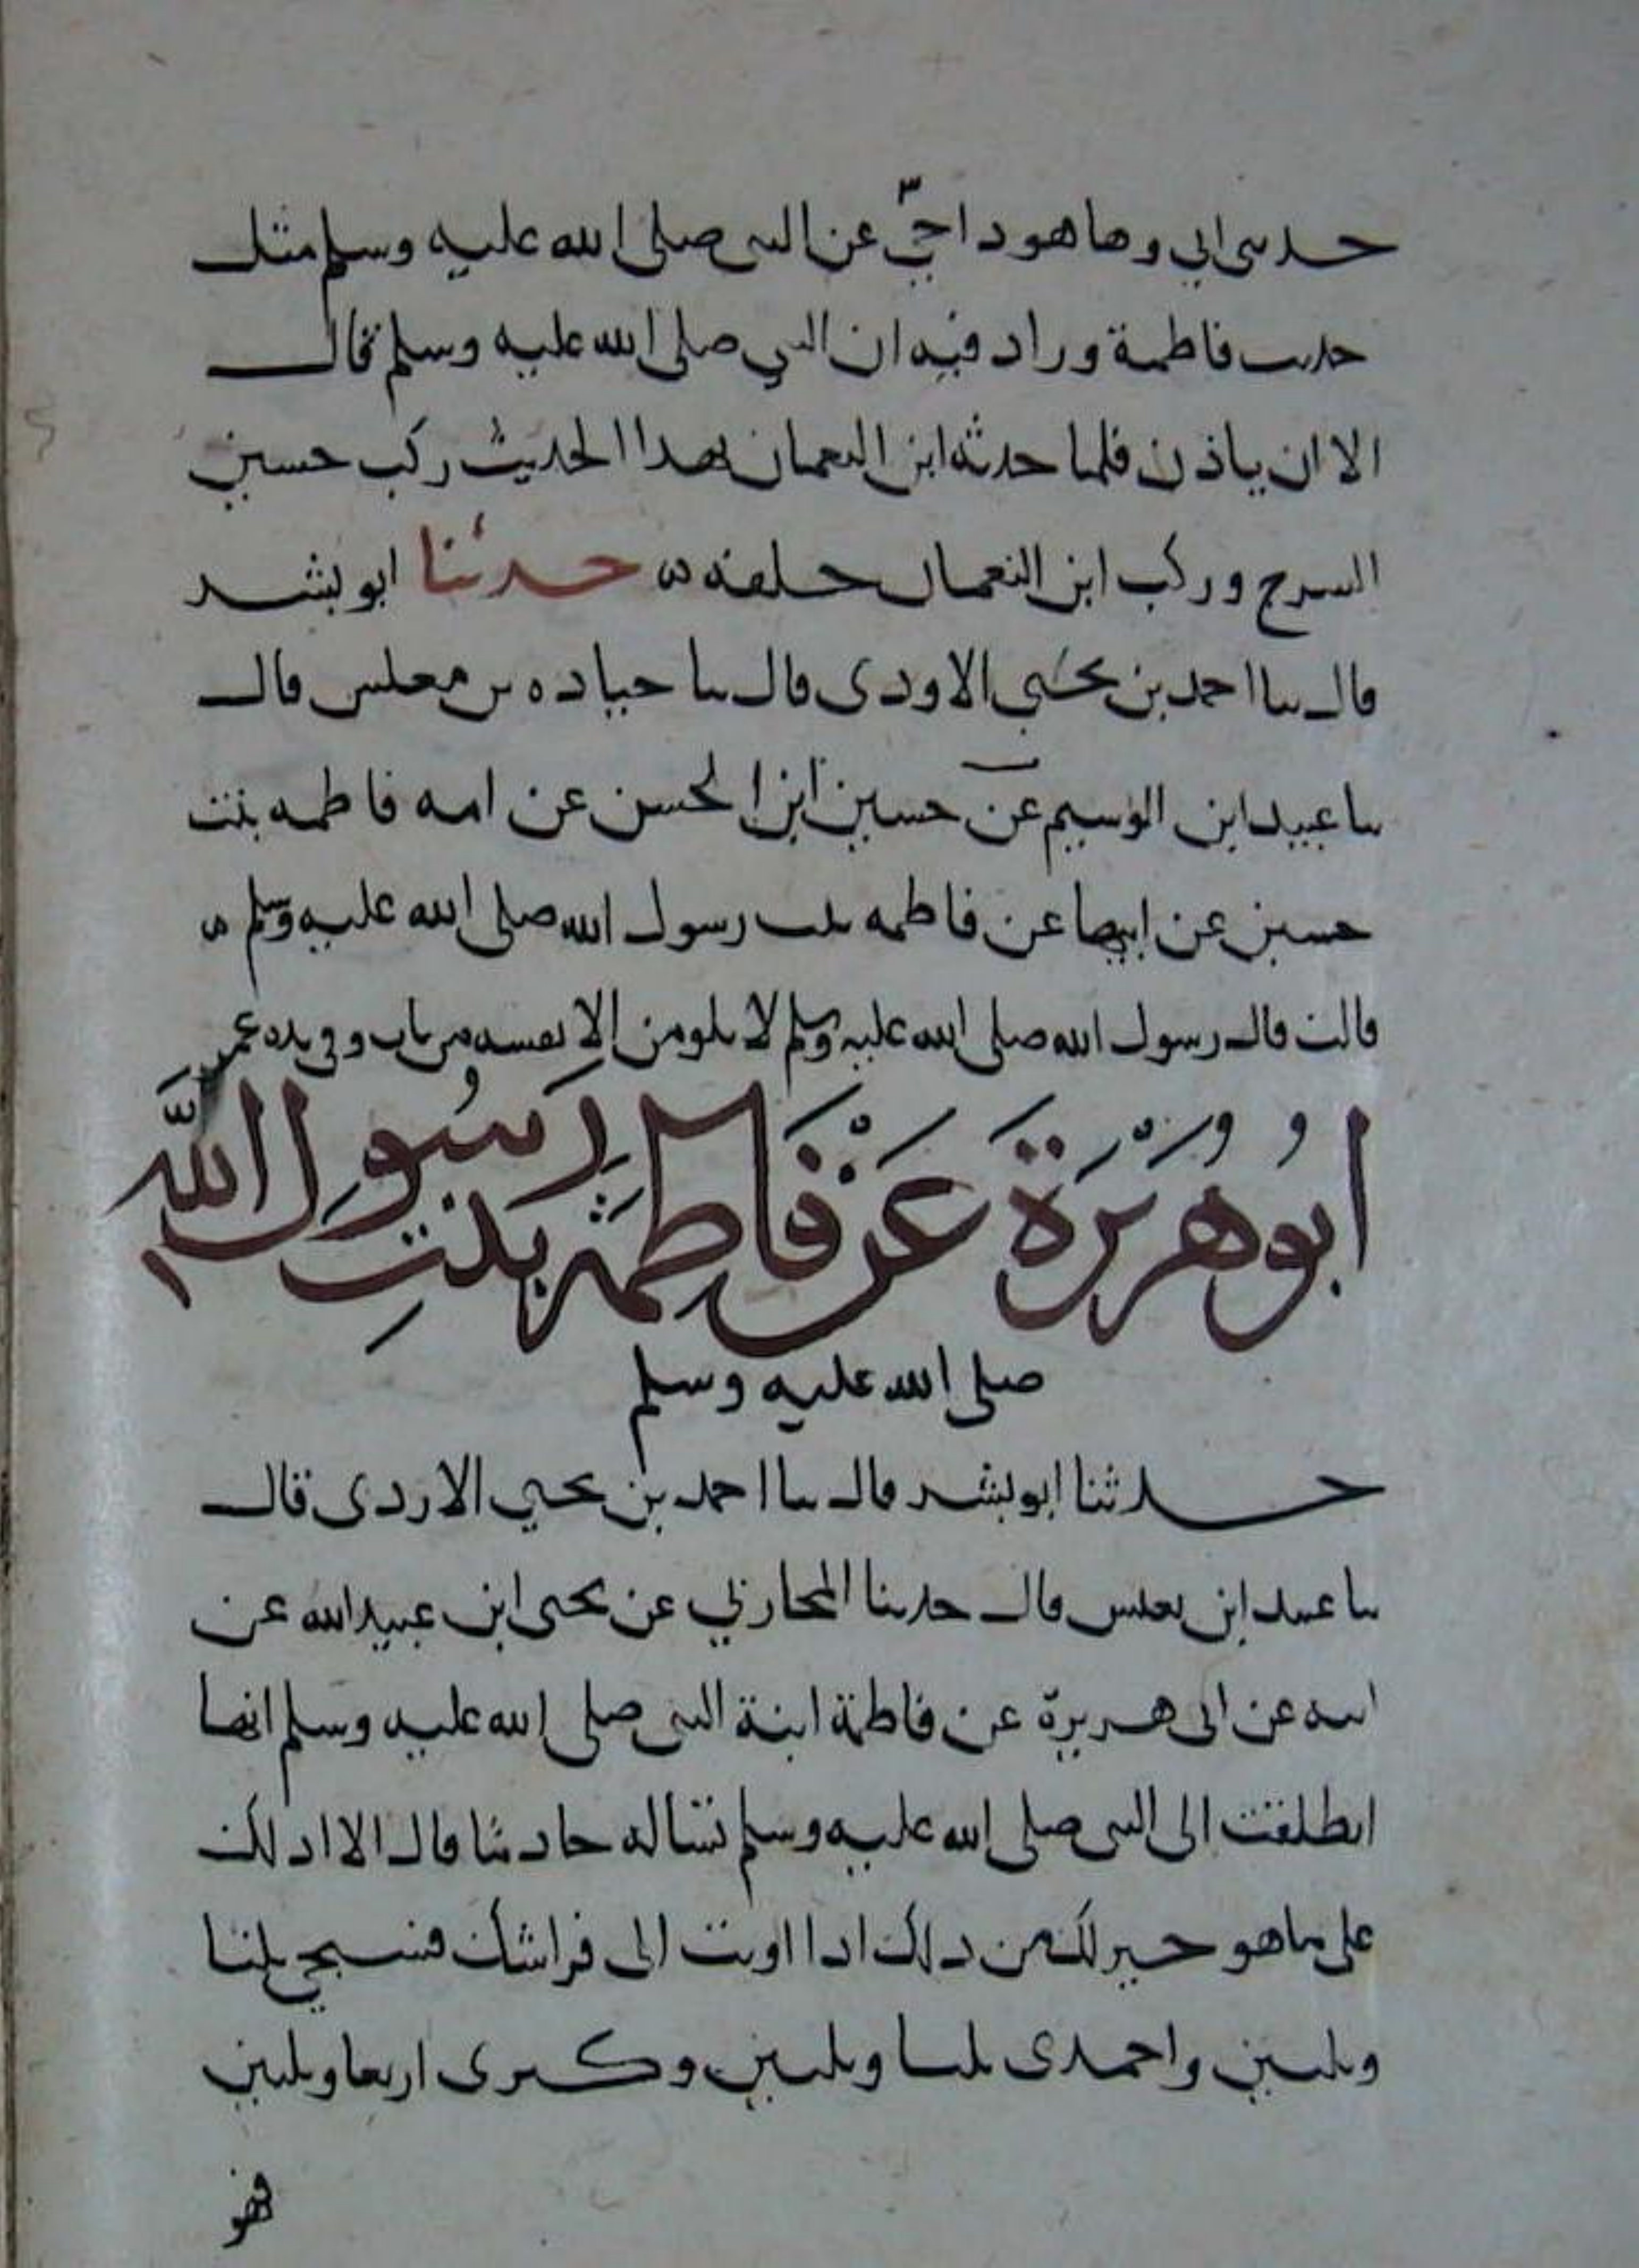 حدثني ابي وها هوذا حي عن النبي صلى الله عليه وسلم مثل
حديث فاطمة وزاد فيه ان النبي صلى الله عليه وسلم قال
الا ان ياذن فلما حدثه ابن النعمان بهذا الحديث ركب حسين
السرج وركب ابن النعمان خلفه حدثنا ابو بشر
قال نا احمد بن يحيى الاودي قال نا جباده بن مغلس قال
نا عبيد ابن الوسيم عن حسين ابن الحسن عن امه فاطمه بنت
حسين عن ابيها عن فاطمه بنت رسول الله صلى الله عليه وسلم
قالت قال رسول الله صلى الله عليه وسلم لا يلومن الا نفسه من بات وفي يده غمر
اَبُو هُرَيْرَةَ عَنْ فَاطِمَة بَنْتِ رَسُول اللَّه
صلى الله عليه وسلم
حدثنا ابو بشر قال نا احمد بن يحيي الازدي قال
نا عبيد ابن يعيش قال حدثنا المحاربي عن يحيى ابن عبيد الله عن
ابيه عن ابي هريرة عن فاطمة ابنة النبي صلى الله عليه وسلم انها
انطلقت الى النبي صلى الله عليه وسلم تساله خادما قال الا ادلك
على ما هو خير لك من ذلك اذا اويت الى فراشك فسبحي ثلثا
وثلثين واحمدي ثلثا وثلثين وكبرى اربعا وثلثين
فهو